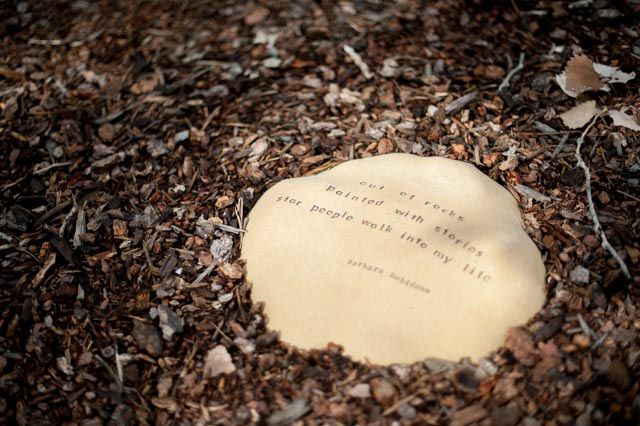 out of rocks
painted with stories
star people walk into my life
Barbara Robidoux